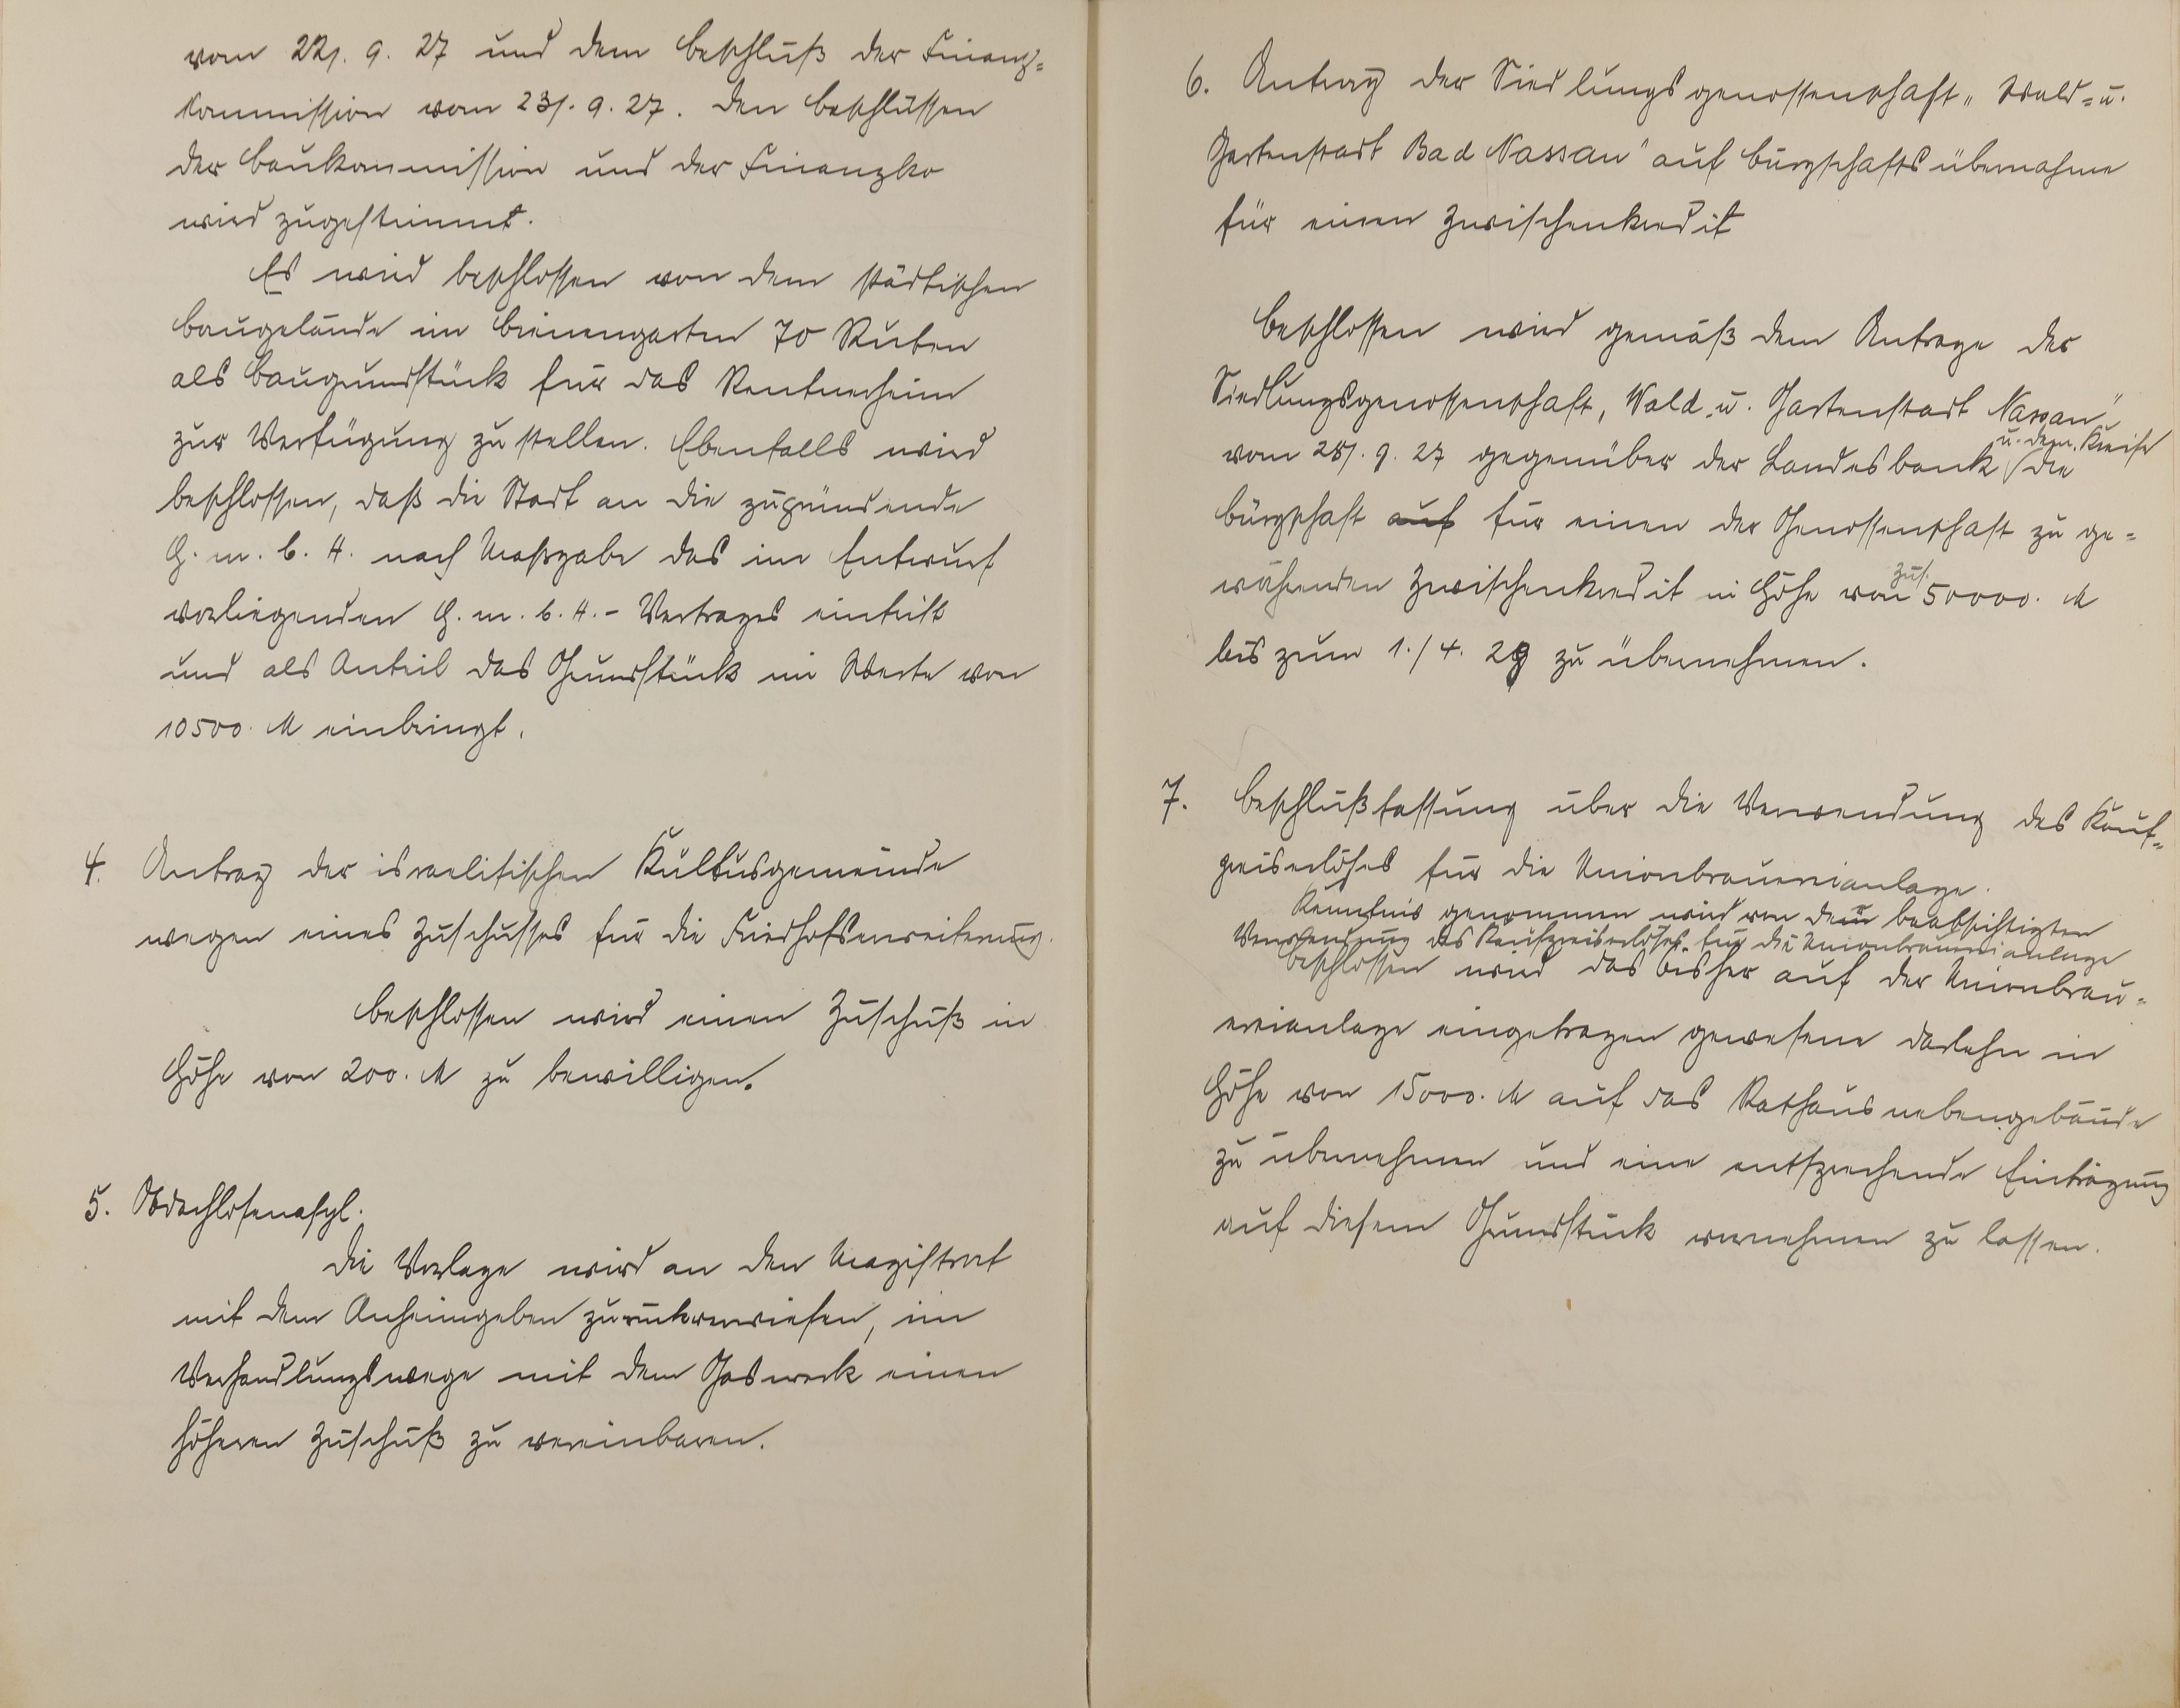 vom 22/. 9. 27 und dem Beschluß der Finanz-
kommission vom 23/. 9. 27. Den Beschlüssen
der Baukommission und der Finanzko
wird zugestimmt.
Es wird beschlossen von dem städtischen
Baugelände im Bienengarten 70 Ruten
als Baugrundstück für das Rentnerheim
zur Verfügung zu stellen. Ebenfalls wird
beschlossen, daß die Stadt an die zugründende
G. m. b. H. nach Massgabe des im Entwurf
vorliegenden G. m. b. H. - Vertrages eintritt
und als Anteil das Grundstück im Werte von
10500. M einbringt.
4. Antrag der israelitischen Kultusgemeinde
wegen eines Zuschusses für die Friedhofserweiterung.
Beschlossen wird einen Zuschuß in
Höhe von 200. M zu bewilligen.
5. Obdachlosenasyl.
Die Vorlage wird an den Magistrat
mit dem Anheimgeben zurückverwiesen, im
Verhandlungswege mit dem Gaswerk einen
höheren Zuschuß zu vereinbaren.
6. Antrag der Siedlungsgenossenschaft „Wald- u.
Gartenstadt Bad Nassau" auf Bürgschaftsübernahme
für einen Zwischenkredit
Beschlossen wird gemäß dem Antrage der
Siedlungsgenossenschaft, Wald- u. Gartenstadt Nassau"
u. dem Kreise
vom 28/. 9. 27 gegenüber der Landesbank die
Bürgschaft auf für einen der Genossenschaft zu ge-
zus.
währenden Zwischenkredit in Höhe von 50000. M
bis zum 1./4. 29 zu übernehmen.
7. Beschlußfassung über die Verwendung des Kauf-
preiserlöses für die Unionbrauereianlage.
Kenntnis genommen wird von der beabsichtigten
Verwendung des Kaufpreiserlöses für die Unionbrauereianlage
Beschlossen wird das bisher auf der Unionbrau-
ereianlage eingetragen gewesene Darlehn in
Höhe von 15000. M auf das Rathausnebengebäude
zu übernehmen und eine entsprechende Eintragung
auf diesem Grundstück vornehmen zu lassen.